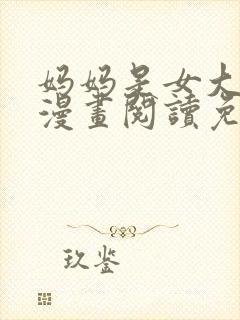 妈妈是女大
漫畫閱讀免
玖鉴